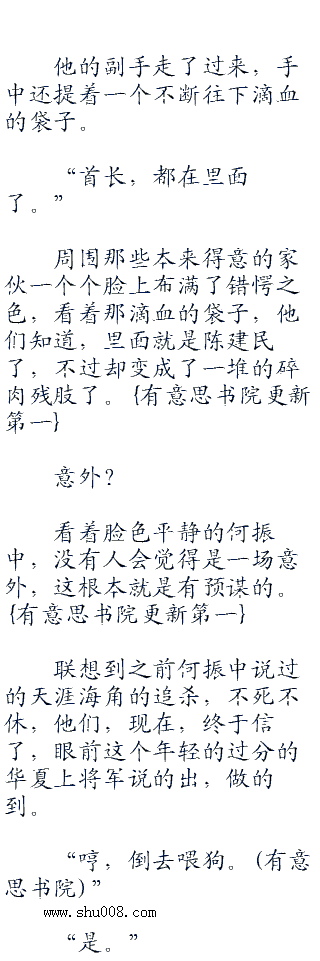 他的副手走了过来，手
中还提着一个不断往下滴血
的袋子。
“首长，都在里面
了。”
周围那些本来得意的家
伙一个个脸上布满了错愕之
色，看着那滴血的袋子，他
们知道，里面就是陈建民
了，不过却变成了一堆的碎
肉残肢了。{有意思书院更新
第一}
意外？
看着脸色平静的何振
中，没有人会觉得是一场意
外，这根本就是有预谋的。
{有意思书院更新第一}
联想到之前何振中说过
的天涯海角的追杀，不死不
休，他们，现在，终于信
了，眼前这个年轻的过分的
华夏上将军说的出，做的
到。
“哼，倒去喂狗。(有意
思书院)”
www.shu008.com
“是。”